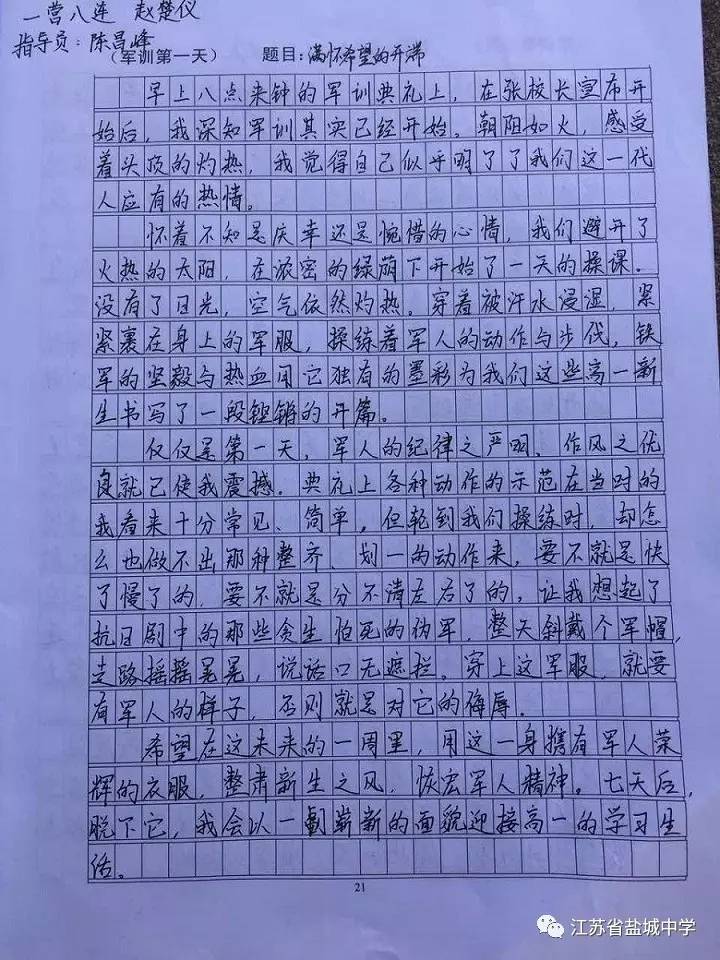 一营八连 赵楚仪
指导员：陈昌峰
（军训第一天） 题目：满怀希望的开端
早上八点来钟的军训典礼上，在张校长宣布开
始后，我深知军训其实已经开始。朝阳如火，感受
着头顶的灼热，我觉得自己似乎明了了我们这一代
人应有的热情。
怀着不知是庆幸还是惋惜的心情，我们避开了
火热的太阳，在浓密的绿荫下开始了一天的操课.
没有了日光，空气依然灼热。穿着被汗水浸湿，紧
紧裹在身上的军服，操练着军人的动作与步伐，铁
军的坚毅与热血用它独有的墨彩为我们这些高一新
生书写了一段铿锵的开篇。
仅仅是第一天，军人的纪律之严明、作风之优
良就已使我震撼。典礼上各种动作的示范在当时的
我看来十分常见、简单，但轮到我们操练时，却怎
么也做不出那种整齐、划一的动作来，要不就是快
了慢了的，要不就是分不清左右了的。让我想起了
抗日剧中的那些贪生怕死的伪军，整天斜戴个军帽，
走路摇摇晃晃，说话口无遮拦。穿上这军服，就要
有军人的样子，否则就是对它的侮辱。
希望在这未来的一周里，用这一身携有军人荣
辉的衣服，整肃新生之风，恢宏军人精神。七天后，
脱下它，我会以一副崭新的面貌迎接高一的学习生
活。
21
江苏省盐城中学